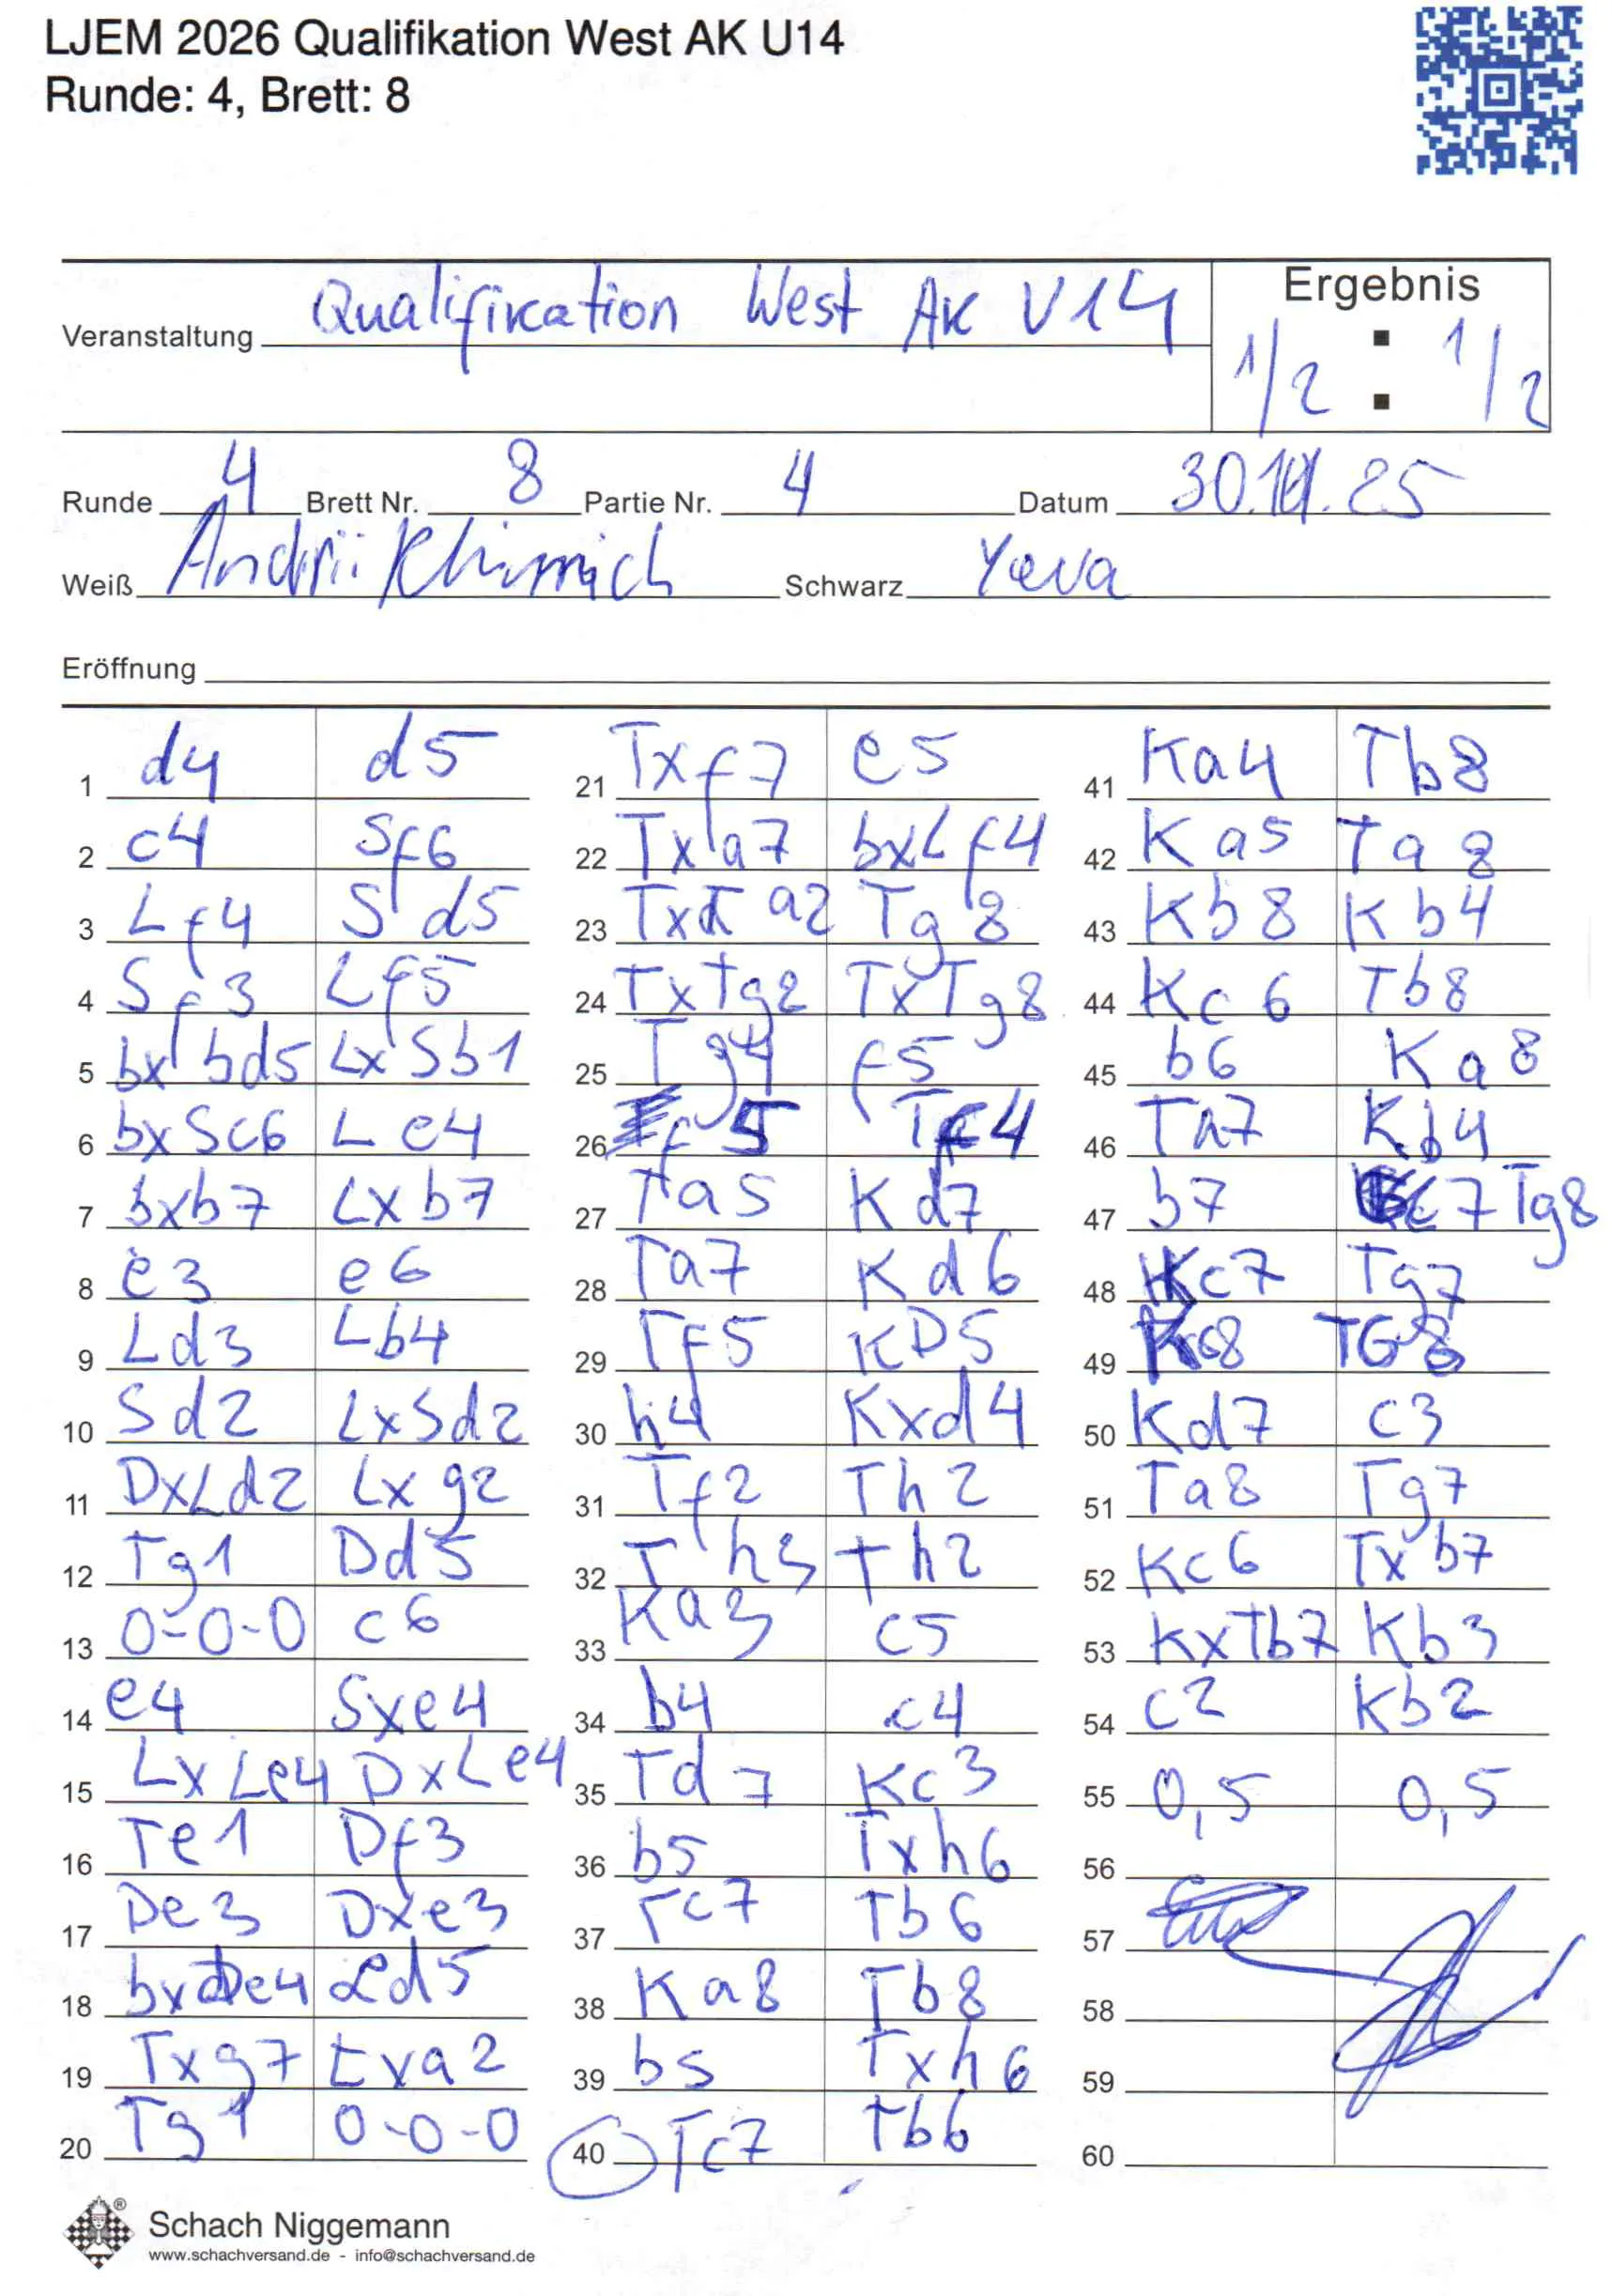 LJEM 2026 Qualifikation West AK U14
Runde: 4, Brett: 8
Veranstaltung Qualifikation West AK U14
Ergebnis
1/2 : 1/2
Runde 4 Brett Nr. 8 Partie Nr. 4 Datum 30.11.25
Weiß Andrii Khimich Schwarz Yeva
Eröffnung
1 d4 d5
2 c4 Sf6
3 Lf4 Sd5
4 Sf3 Lf5
5 bxbd5 LxSb1
6 bxSc6 Le4
7 bxb7 Lxb7
8 e3 e6
9 Ld3 Lb4
10 Sd2 LxSd2
11 DxLd2 Lxg2
12 Tg1 Dd5
13 0-0-0 c6
14 e4 Sxe4
15 LxLe4 DxLe4
16 Te1 Df3
17 De3 Dxe3
18 bxDe4 Ld5
19 Txg7 Lxa2
20 Tg1 0-0-0
21 Txf7 e5
22 Txa7 bxLf4
23 TxTa2 Tg8
24 TxTg2 TxTg8
25 Tg4 f5
26 f5 Tf4
27 Ta5 Kd7
28 Ta7 Kd6
29 Tf5 KD5
30 h4 Kxd4
31 Tf2 Th2
32 Th3 Th2
33 Ka3 c5
34 b4 c4
35 Td7 Kc3
36 b5 Txh6
37 Tc7 Tb6
38 Ka8 Tb8
39 b5 Txh6
40 Tc7 Tb6
41 Ka4 Tb8
42 Ka5 Ta8
43 Kb8 Kb4
44 Kc6 Tb8
45 b6 Ka8
46 Ta7 Kb4
47 b7 Tg8
48 Kc7 Tg7
49 Kc8 TG8
50 Kd7 c3
51 Ta8 Tg7
52 Kc6 Txb7
53 KxTb7 Kb3
54 c2 Kb2
55 0,5 0,5
56
57
58
59
60
Schach Niggemann
www.schachversand.de - info@schachversand.de